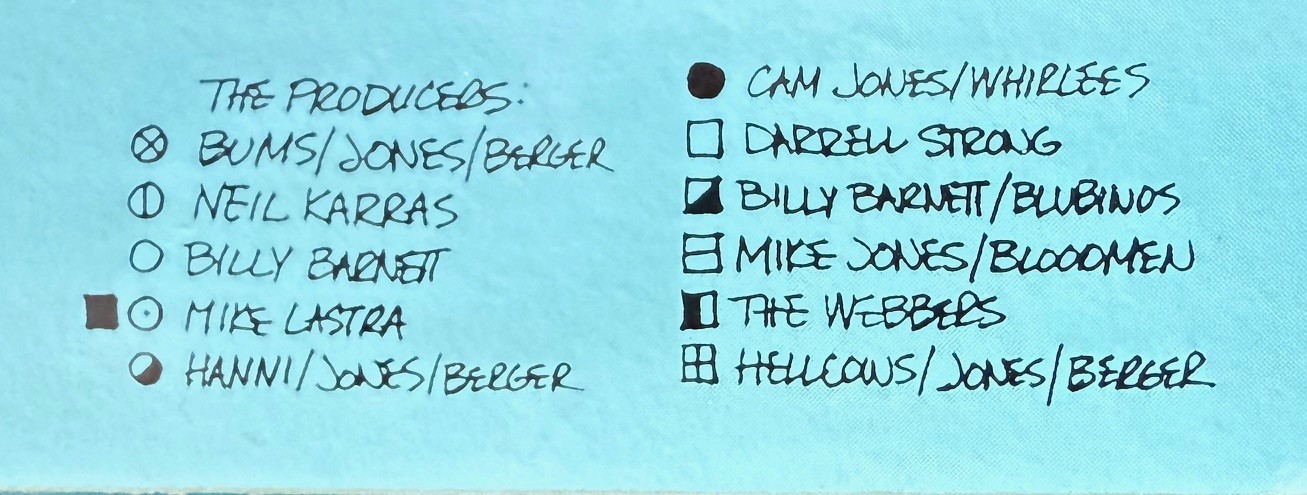 THE PRODUCERS:
BUMS/JONES/BERGER
NEIL KARRAS
BILLY BARNETT
MIKE LASTRA
HANNI/JONES/BERGER
CAM JONES/WHIRLEES
DARRELL STRONG
BILLY BARNETT/BLUBINOS
MIKE JONES/BLOODMEN
THE WEBBERS
HELLCOWS/JONES/BERGER